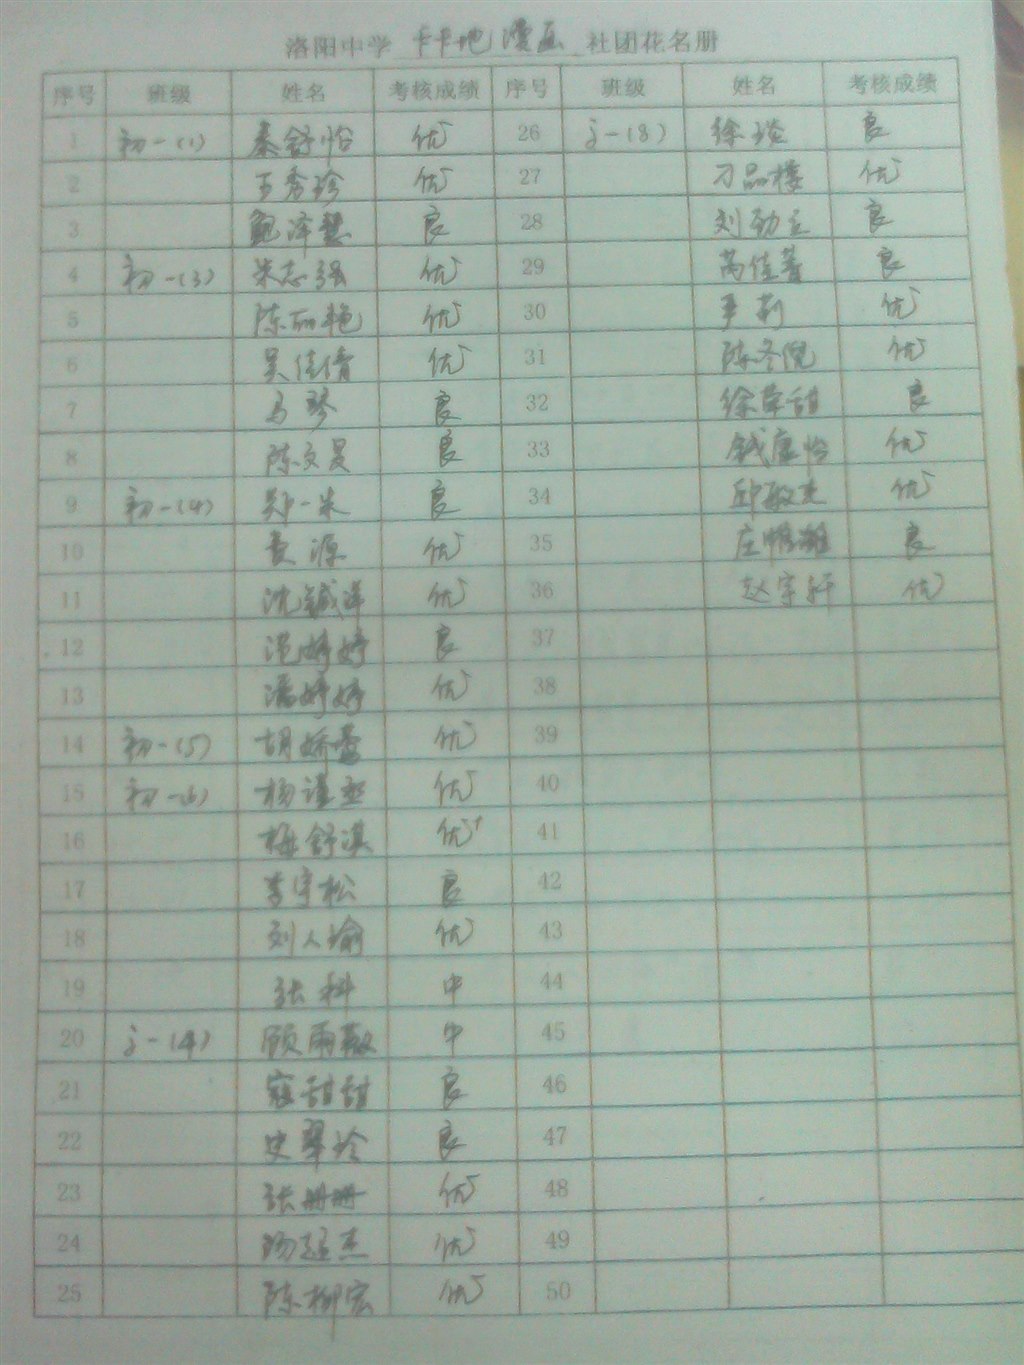 洛阳中学 卡卡地漫画 社团花名册
序号 班级 姓名 考核成绩 序号 班级 姓名 考核成绩
1 初一(1) 秦舒怡 优 26 初一(8) 徐琰 良
2 王秀珍 优 27 刁品楼 优
3 鲍泽慧 良 28 刘劲立 良
4 初一(3) 朱志强 优 29 佳 良
5 陈丽艳 优 30 尹莉 优
6 吴佳倩 优 31 陈冬悦 优
7 马琴 良 32 徐荣甜 良
8 陈文昊 良 33 钱康怡 优
9 初一(4) 郑一朱 良 34 邱敏杰 优
10 袁源 优 35 庄 良
11 沈 优 36 赵宇轩 优
12 婷婷 良 37
13 潘婷婷 优 38
14 初一(5) 胡娇 优 39
15 初一(6) 杨 优 40
16 梅舒淇 优 41
17 李宇松 良 42
18 刘人瑜 优 43
19 张科 中 44
20 初一(4) 顾雨薇 中 45
21 寇甜甜 良 46
22 史翠玲 良 47
23 张册册 优 48
24 杰 优 49
25 陈柳宏 优 50